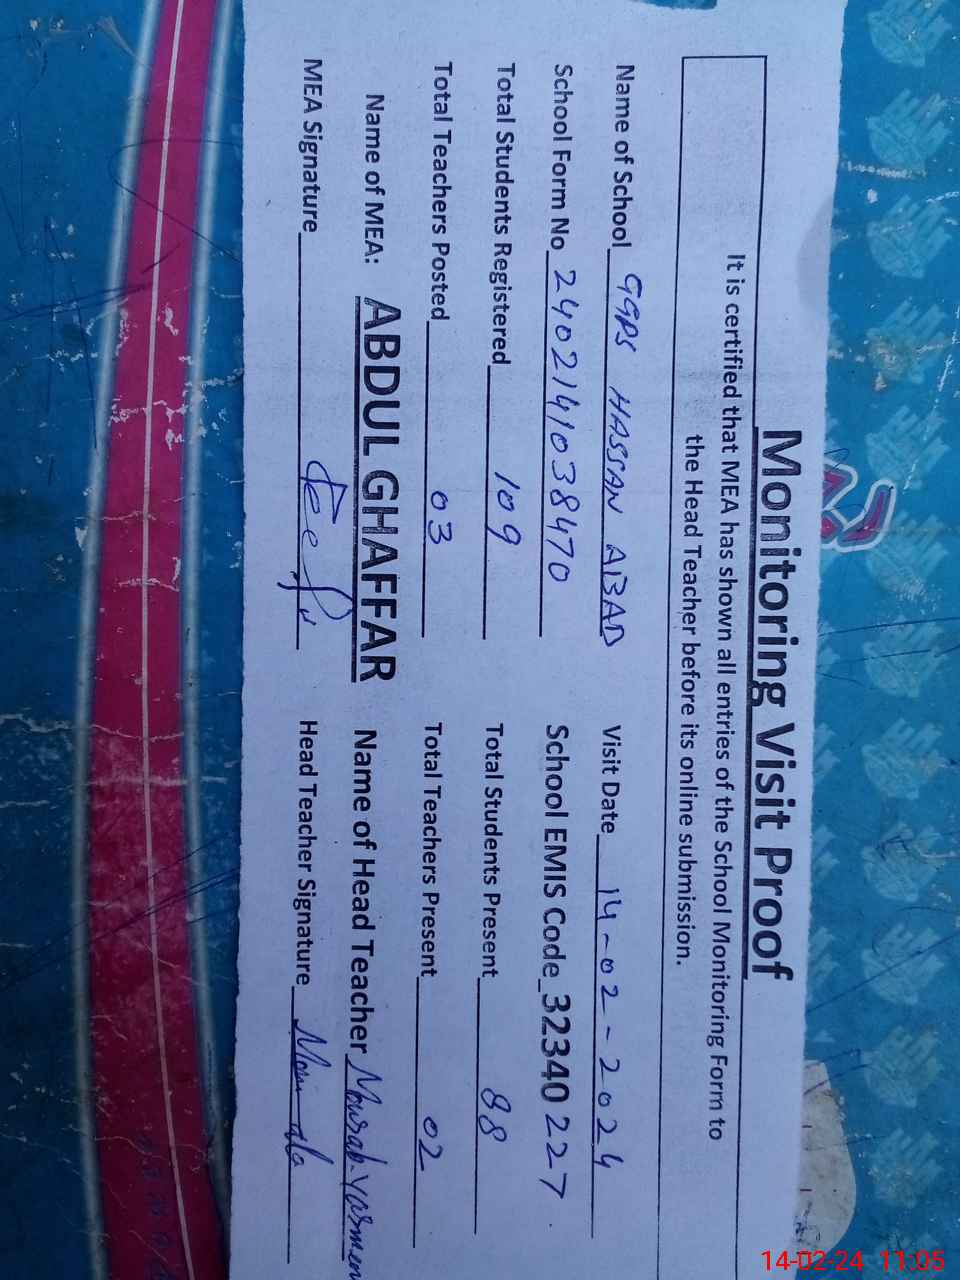 Monitoring Visit Proof
It is certified that MEA has shown all entries of the School Monitoring Form to
the Head Teacher before its online submission.
Name of School GGPS HASSAN ABAD Visit Date 14-02-2024
School Form No 2402141038470 School EMIS Code 32340227
Total Students Registered 109 Total Students Present 88
Total Teachers Posted 03 Total Teachers Present 02
Name of MEA: ABDUL GHAFFAR Name of Head Teacher Yasmen
MEA Signature Head Teacher Signature
14-02-24 11:05